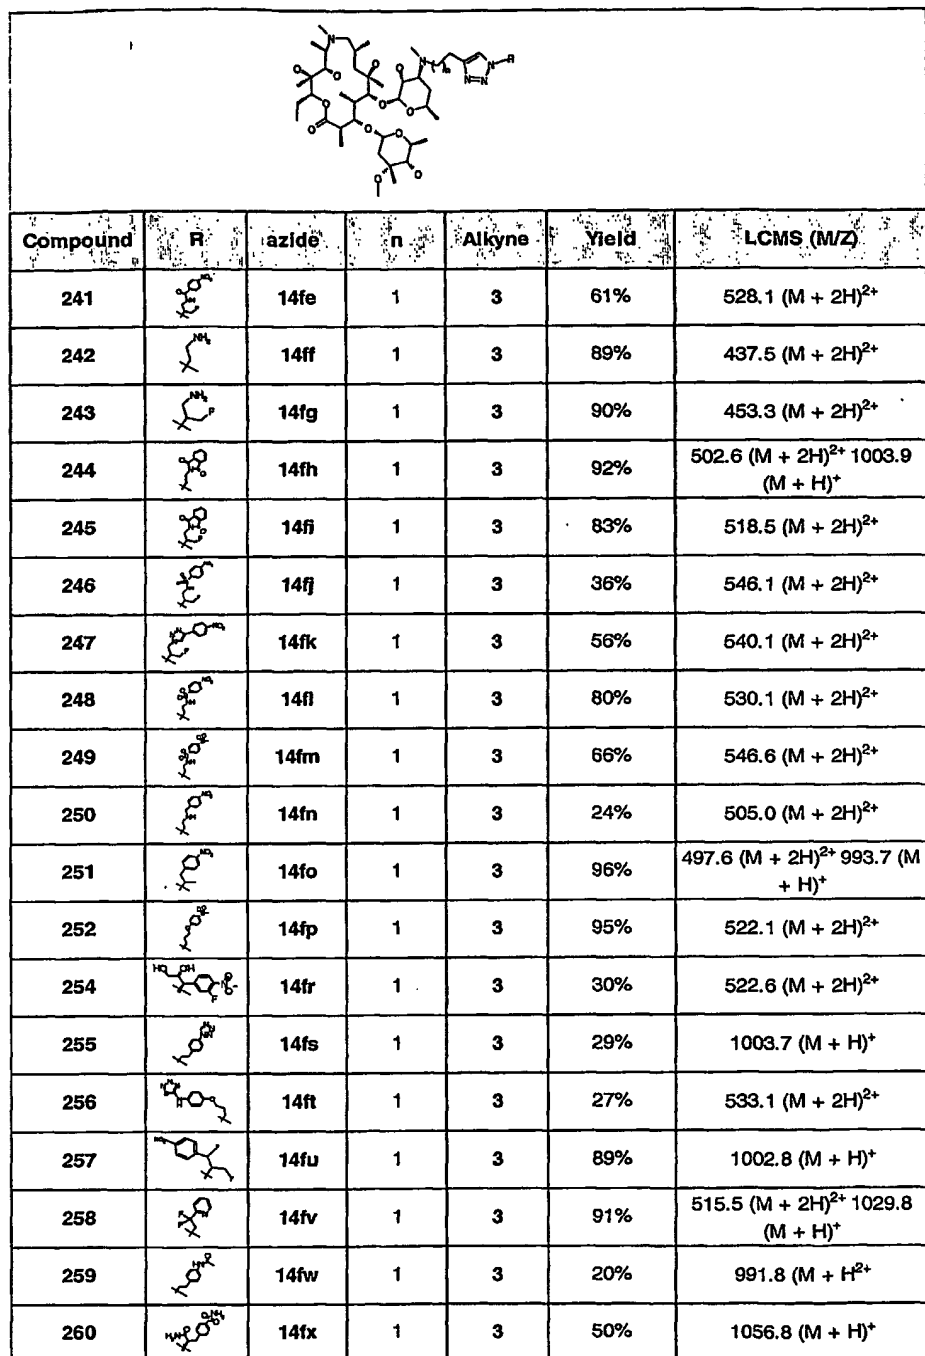 Compound R azide n Alkyne Yield LCMS (M/Z)
241 14fe 1 3 61% 528.1 (M + 2H)2+
242 NH2 14ff 1 3 89% 437.5 (M + 2H)2+
243 NH2 F 14fg 1 3 90% 453.3 (M + 2H)2+
244 14fh 1 3 92% 502.6 (M + 2H)2+ 1003.9
(M + H)+
245 14fi 1 3 83% 518.5 (M + 2H)2+
246 14fj 1 3 36% 546.1 (M + 2H)2+
247 14fk 1 3 56% 540.1 (M + 2H)2+
248 14fl 1 3 80% 530.1 (M + 2H)2+
249 14fm 1 3 66% 546.6 (M + 2H)2+
250 14fn 1 3 24% 505.0 (M + 2H)2+
251 14fo 1 3 96% 497.6 (M + 2H)2+ 993.7 (M
+ H)+
252 14fp 1 3 95% 522.1 (M + 2H)2+
254 HO OH F 14fr 1 3 30% 522.6 (M + 2H)2+
255 14fs 1 3 29% 1003.7 (M + H)+
256 14ft 1 3 27% 533.1 (M + 2H)2+
257 14fu 1 3 89% 1002.8 (M + H)+
258 14fv 1 3 91% 515.5 (M + 2H)2+ 1029.8
(M + H)+
259 14fw 1 3 20% 991.8 (M + H2+
260 14fx 1 3 50% 1056.8 (M + H)+